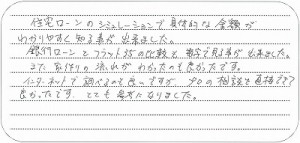 住宅ローンのシュミレーションで具体的な金額が
わかりやすく知る事が出来ました。
銀行ローンとフラット35の比較も数字で見る事が出来ました。
また取作りの流れがわかったのも良かったです。
インターネットで調べるのも良いですが プロの相談を直接できて
良かったです とても参考になりました。